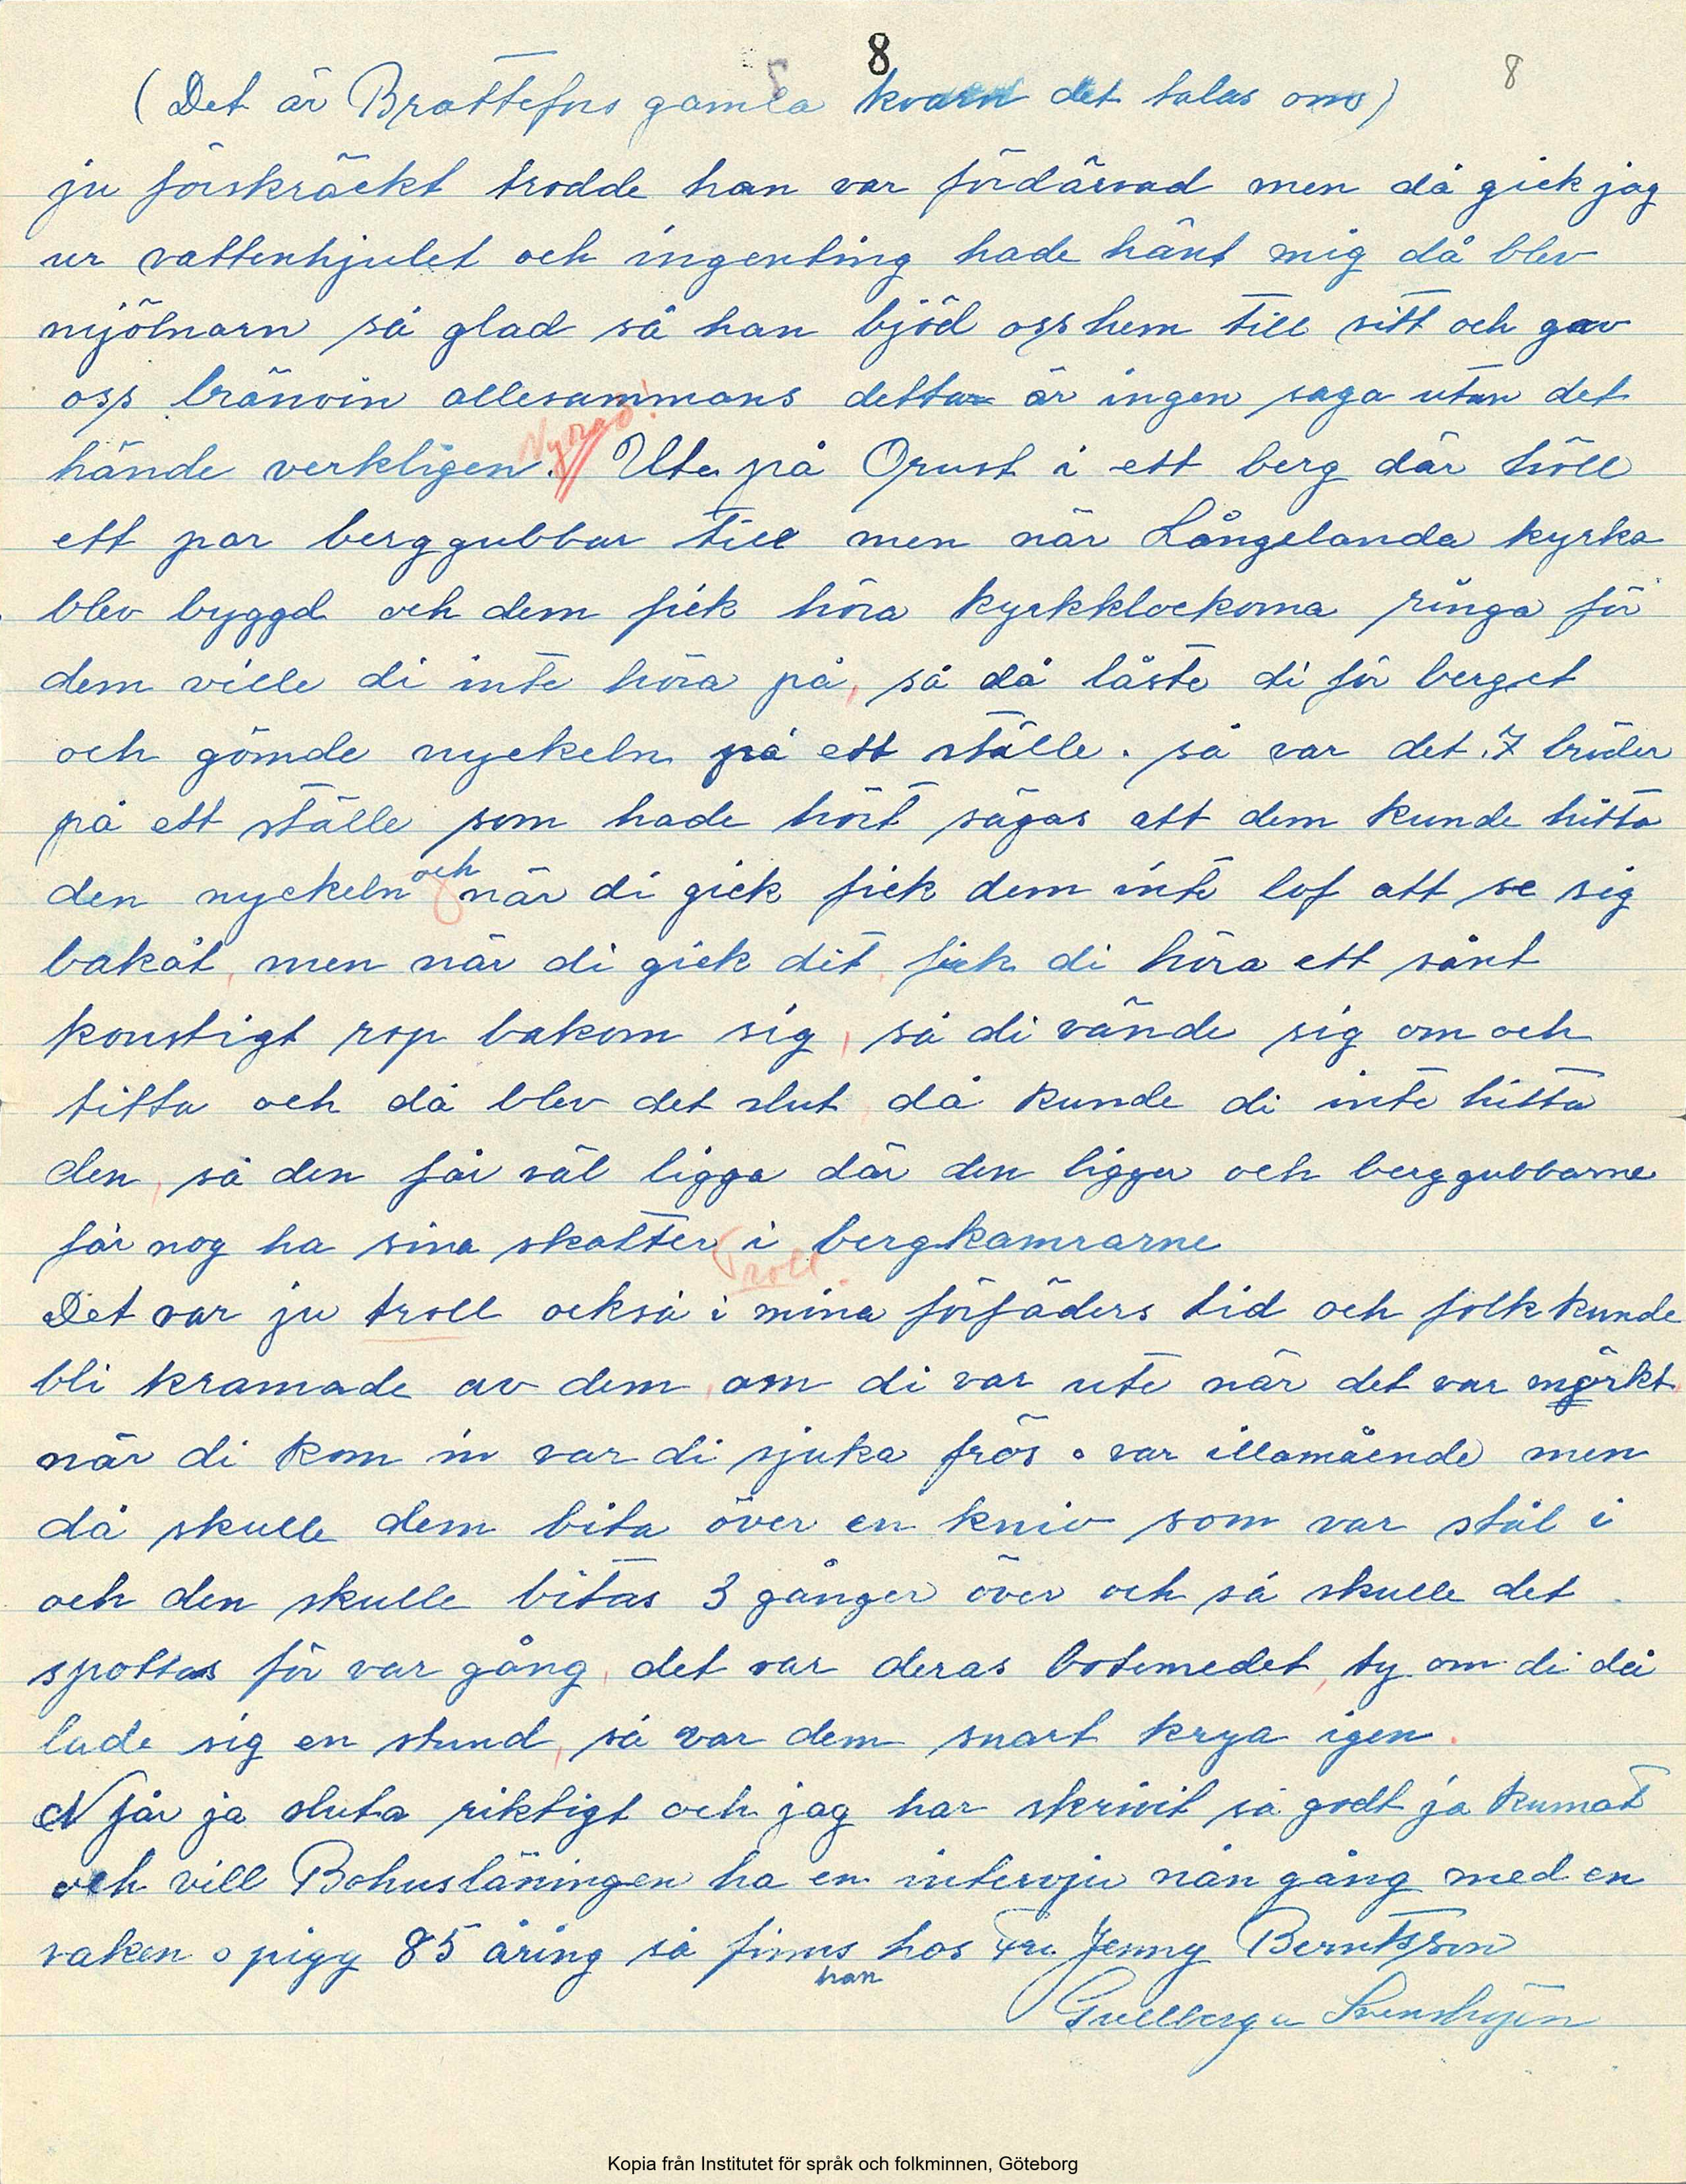 8
8
(Det är Brattefors gamla kvarn det talas om)
ju förskräckt trodde han var fördärvad men då gick jag
ur vattenhjulet och ingenting hade hänt mig då blev
mjölnarn så glad så han bjöd oss hem till sitt och gav
oss bränvin allesammans detta är ingen saga utan det
Ny rad!
hände verkligen. Ute på Orust i ett berg där höll
ett par berggubbar till men när Långelanda kyrka
blev byggd och dem fick höra kyrkklockorna ringa för
dem ville di inte höra på, så då låste di för berget
och gömde nyckeln på ett ställe. så var det 7 bröder
på ett ställe som hade hört sägas att dem kunde hitta
den nyckeln och när di gick fick dem inte lof att se sig
bakåt, men när di gick dit, fick di höra ett sånt
konstigt rop bakom sig, så di vände sig om och
titta och då blev det slut då kunde di inte hitta
den, så den får väl ligga där den ligger och berggubbarne
får nog ha sina skatter i bergkamrarne
Troll.
Det var ju troll också i mina förfäders tid och folk kunde
bli kramade av dem, om di var ute när det var mörkt,
när di kom in var di sjuka frös o var illamående men
då skulle dem bita över en kniv som var stål i
och den skulle bitas 3 gånger över och så skulle det
spottas för var gång, det var deras botemedel, ty om di då
lade sig en stund, så var dem snart krya igen.
N får ja sluta riktigt och jag har skrivit så godt ja kunnat
och vill Bohusläningen ha en intervju nån gång med en
vaken o pigg 85 åring så finns han hos Fru Jenny Berntsson
Gullberga Svenshögen
Kopia från Institutet för språk och folkminnen, Göteborg